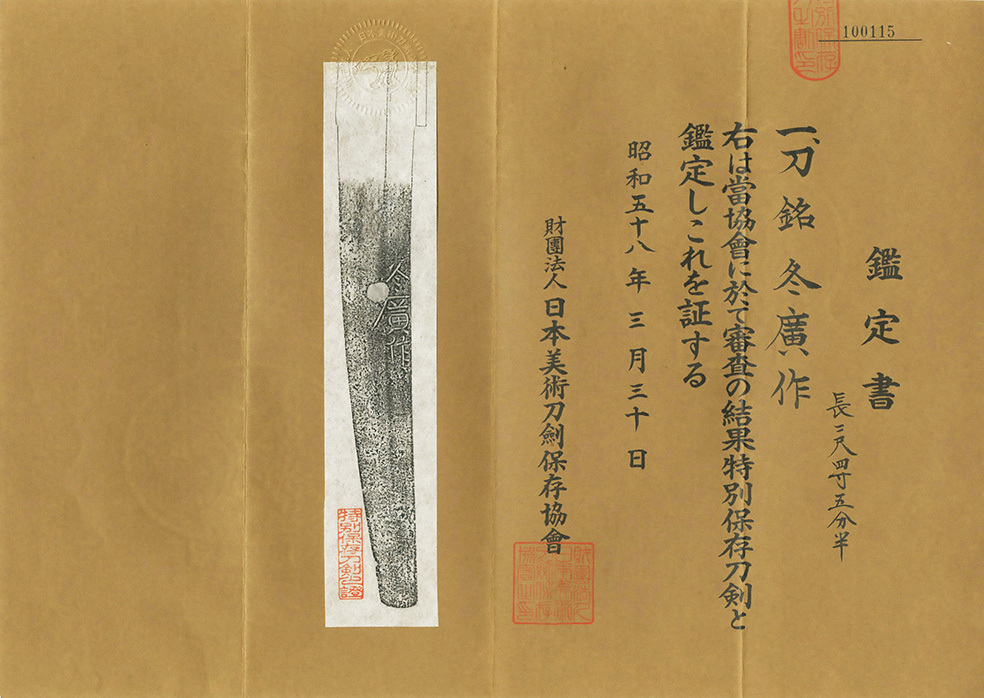 100115
鑑定書
長二尺四寸五分半
一、刀 銘 冬廣作
右は當協會に於て審査の結果特別保存刀剣と
鑑定しこれを証する
昭和五十八年三月三十日
財團法人日本美術刀劍保存協會
冬廣作
特別保存刀剣之證